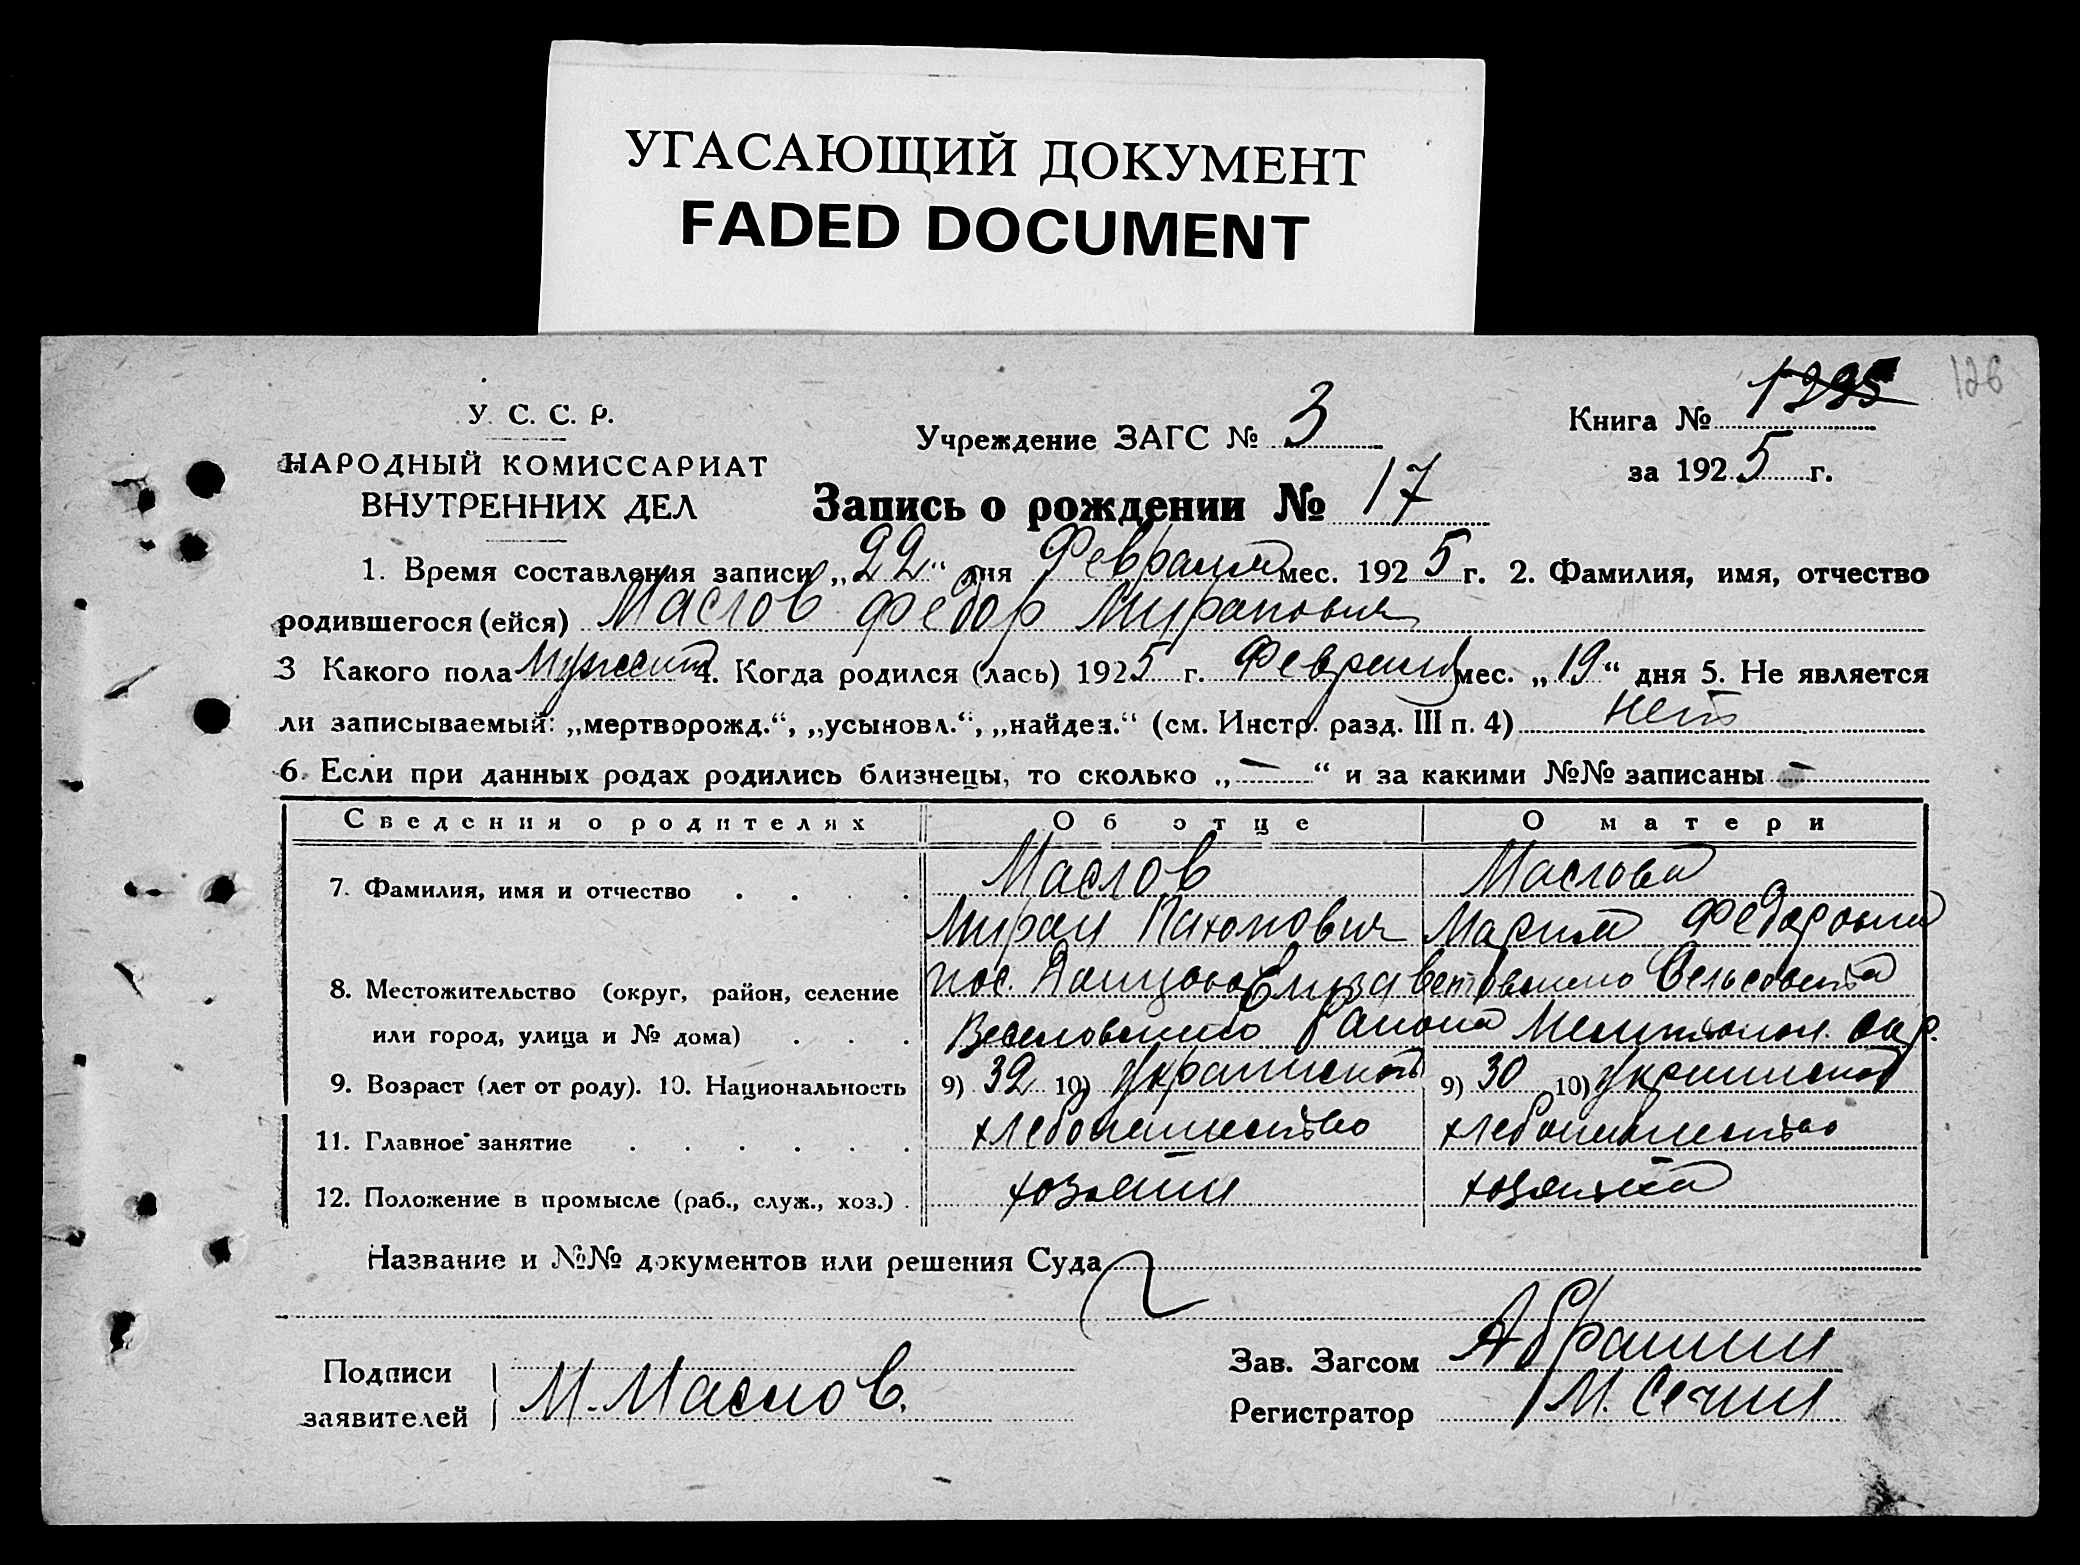 УГАСАЮЩИЙ ДОКУМЕНТ
FADED DOCUMENT
126
У. С. С. Р.
НАРОДНЫЙ КОМИССАРИАТ
ВНУТРЕННИХ ДЕЛ
Учреждение ЗАГС № 3
Книга №
за 1925 г.
Запись о рождении № 17
1. Время составления записи „22“ дня Февраля мес. 1925 г. 2. Фамилия, имя, отчество
родившегося (ейся) Маслов Федор Миранович
3 Какого пола Мужск 4. Когда родился (лась) 1925 г. Февраля мес. „19“ дня 5. Не является
ли записываемый: „мертворожд.“, „усыновл.“, „найден.“ (см. Инстр. разд. III п. 4) Нет
6. Если при данных родах родились близнецы, то сколько „—“ и за какими №№ записаны —
Сведения о родителях Об отце О матери
7. Фамилия, имя и отчество Маслов Маслова
Миран Пахомович Мария Федоровна
8. Местожительство (округ, район, селение пос. Елизаветовского Сельсовета
или город, улица и № дома) Веселовского Района Мелитопол. окр.
9. Возраст (лет от роду). 10. Национальность 9) 32 10) Украинской 9) 30 10) Украинской
11. Главное занятие хлебопашество хлебопашество
12. Положение в промысле (раб., служ., хоз.) хозяин хозяйка
Название и №№ документов или решения Суда
Подписи
заявителей М. Маслов.
Зав. Загсом
Регистратор М. Сечин